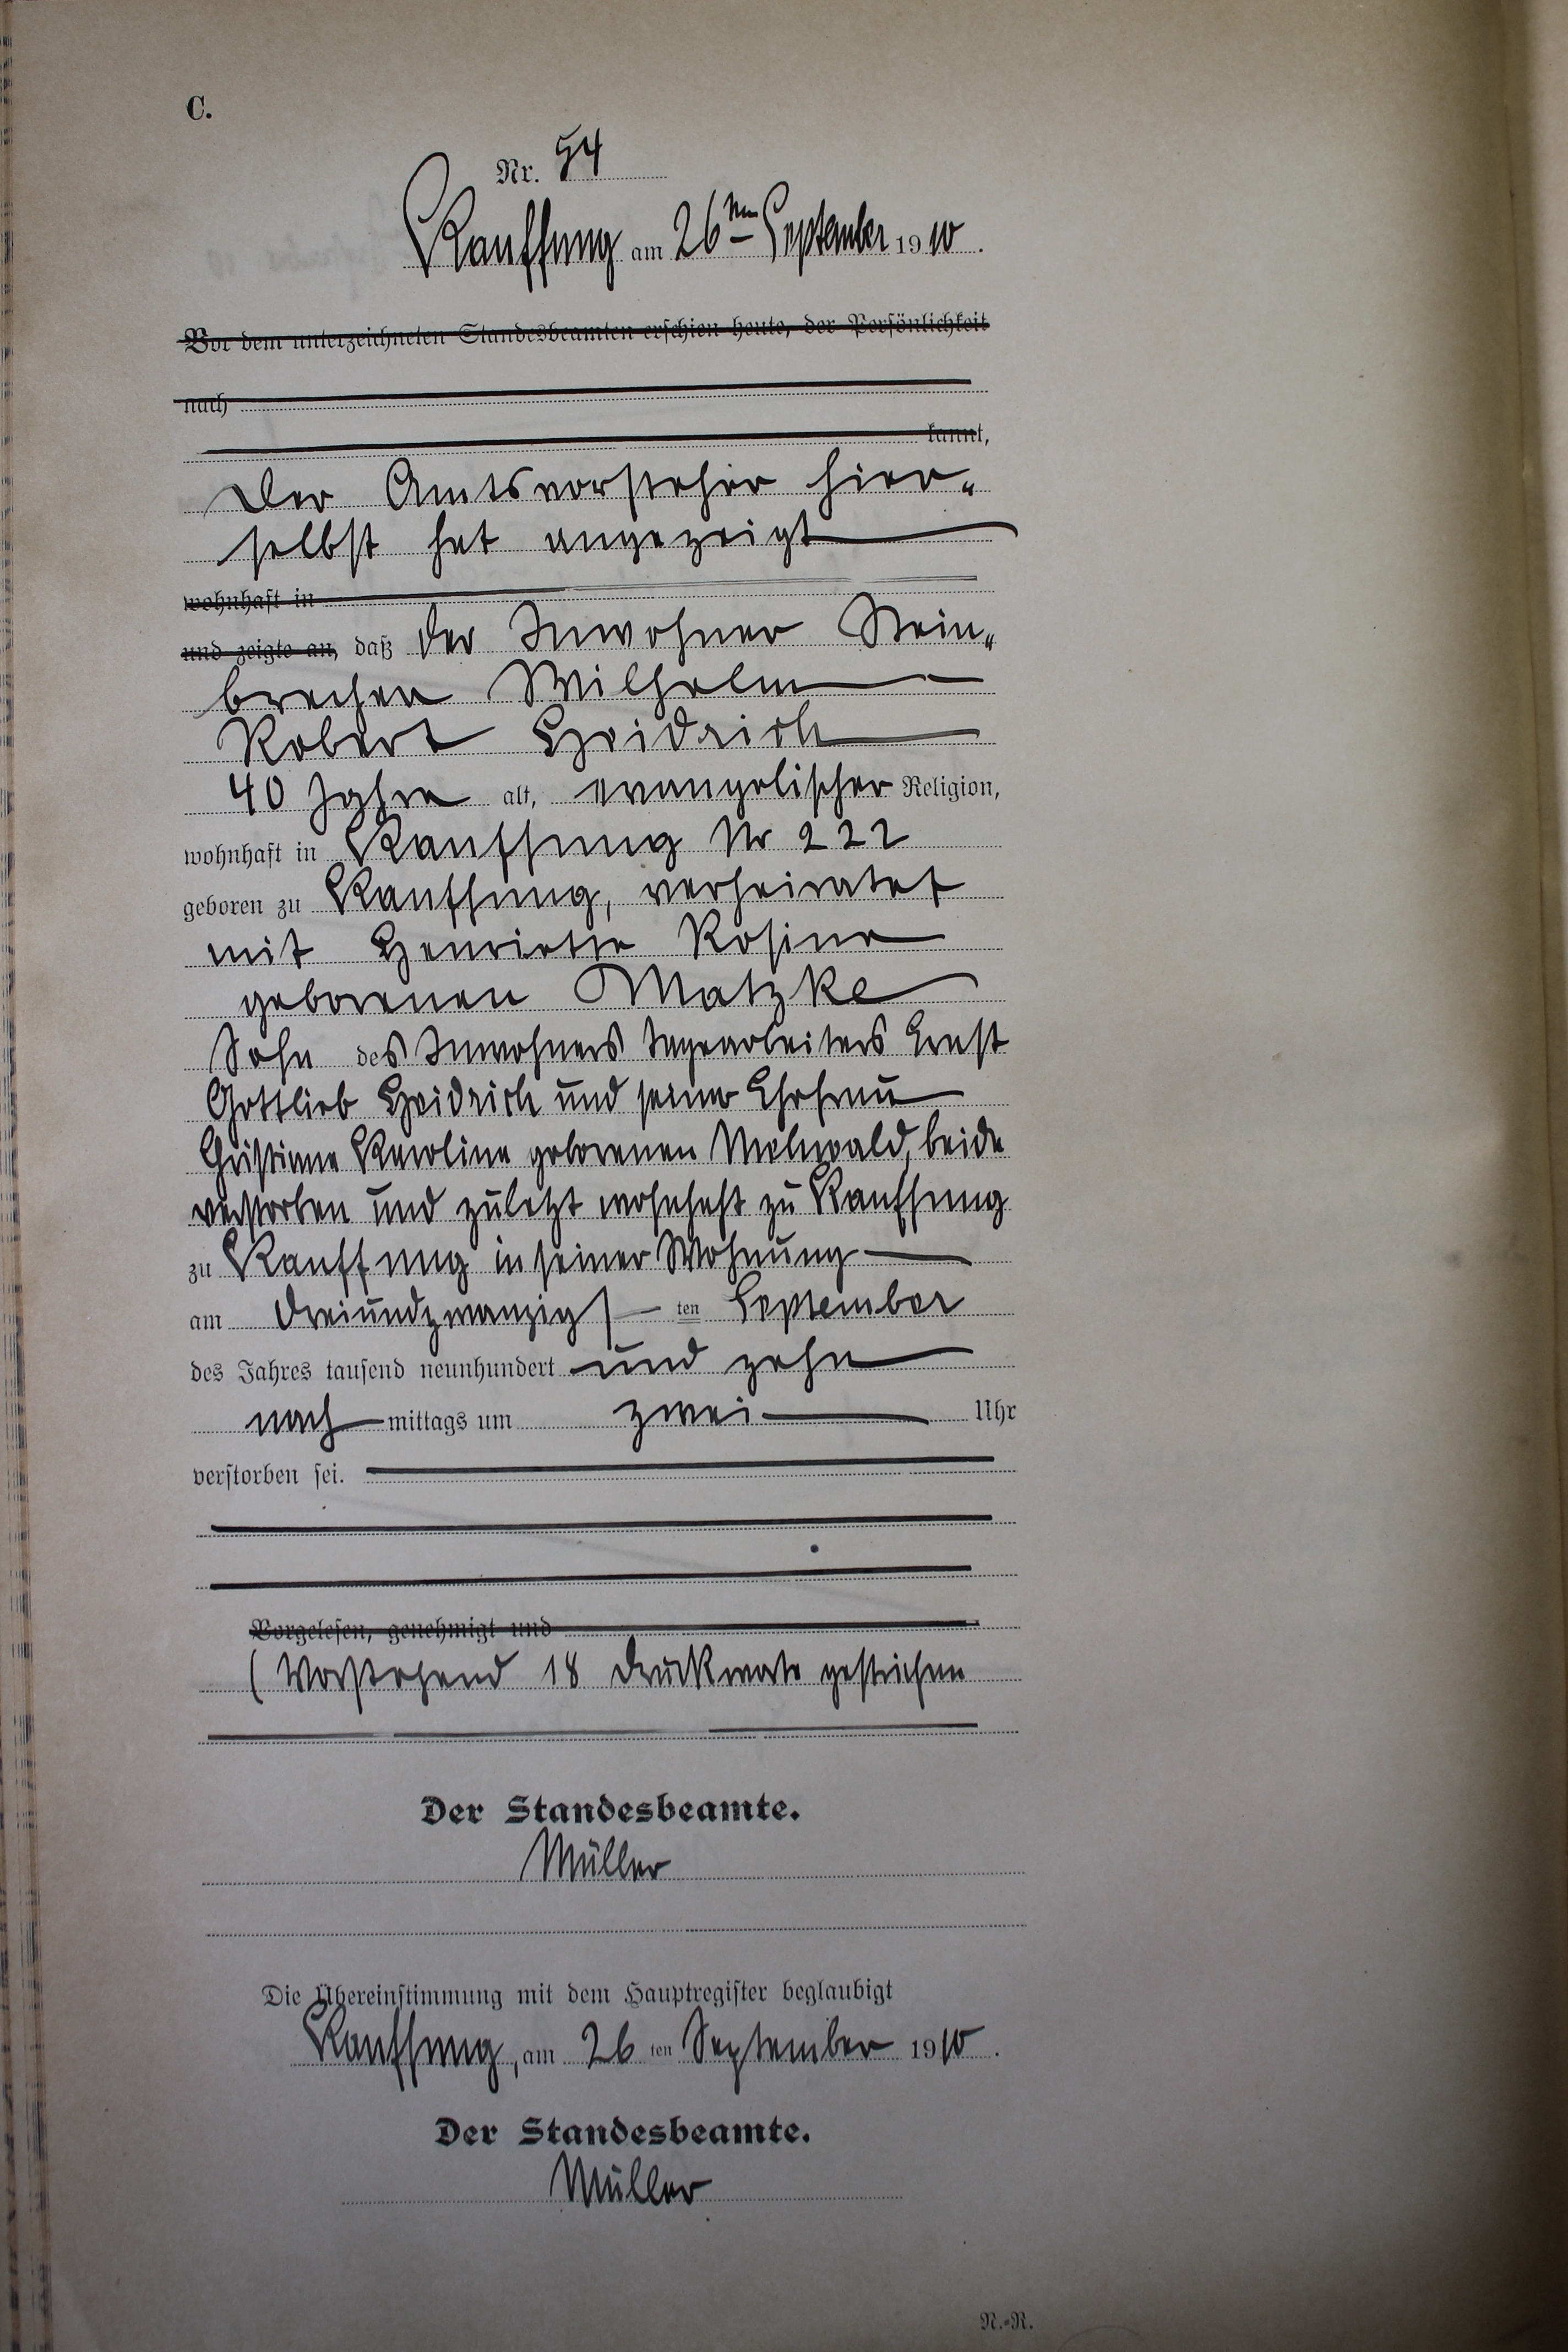 C.
Nr. 54
Kauffung am 26ten September 1910.
Vor dem unterzeichneten Standesbeamten erschien heute, der Persönlichkeit
nach
kannt,
Der Amtsvorsteher hier-
selbst hat angezeigt
wohnhaft in
und zeigte an, daß der Inwohner Stein-
brecher Wilhelm
Robert Heidrich
40 Jahre alt, evangelischer Religion,
wohnhaft in Kauffung Nr 222
geboren zu Kauffung, verheiratet
mit Henriette Rosine
geborenen Matzke
Sohn des Inwohners Tagearbeiters Ernst
Gottlieb Heidrich und seiner Ehefrau
Christiane Karoline geborenen Mehwald, beide
verstorben und zuletzt wohnhaft zu Kauffung
zu Kauffung in seiner Wohnung
am dreiundzwanzigsten September
des Jahres tausend neunhundert und zehn
nachmittags um zwei Uhr
verstorben sei.
Vorgelesen, genehmigt und
(Vorstehend 18 Druckworte gestrichen
Der Standesbeamte.
Müller
Die Übereinstimmung mit dem Hauptregister beglaubigt
Kauffung, am 26ten September 1910.
Der Standesbeamte.
Müller
N.=R.